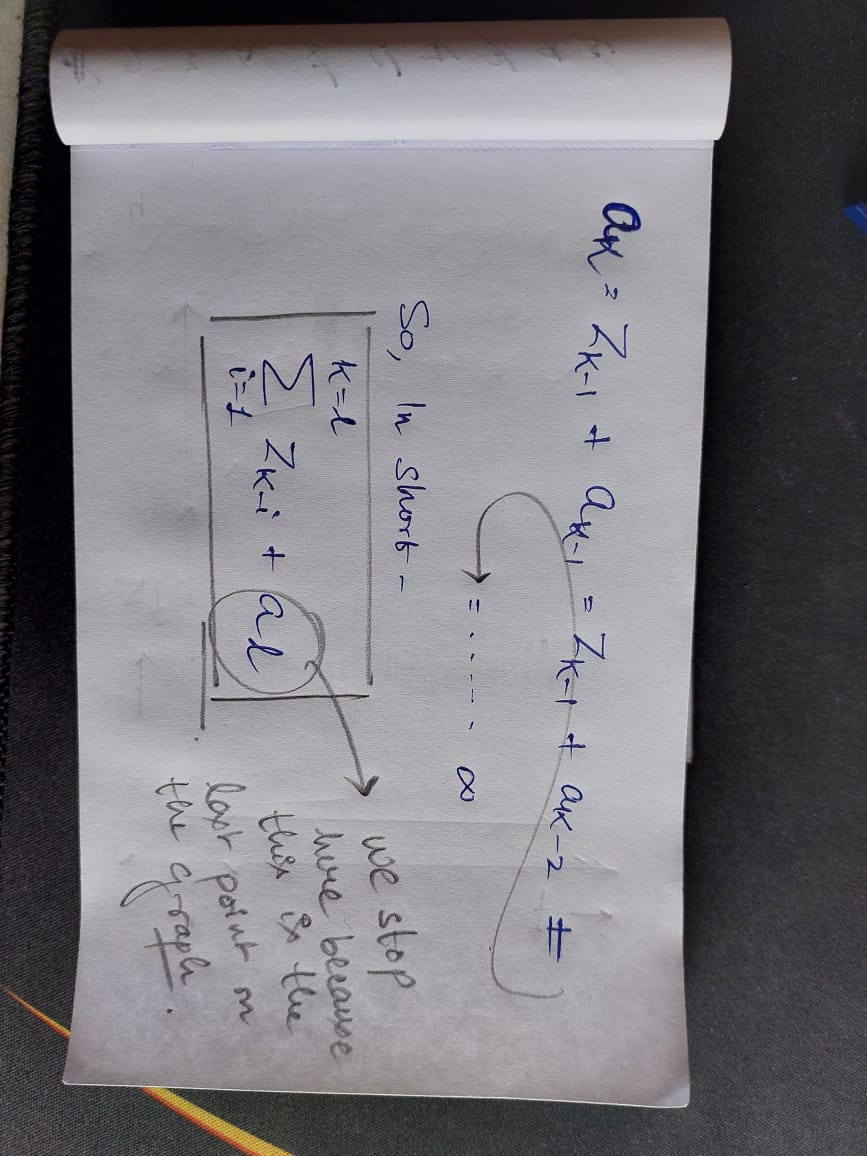 aₖ = Zₖ₋₁ + aₖ₋₁ = Zₖ₋₁ + aₖ₋₂ =
= . . . . . . ∞
So, In short -
k=l
∑ Zₖ₋ᵢ + aₗ
i=1
we stop
here because
this is the
last point on
the graph.